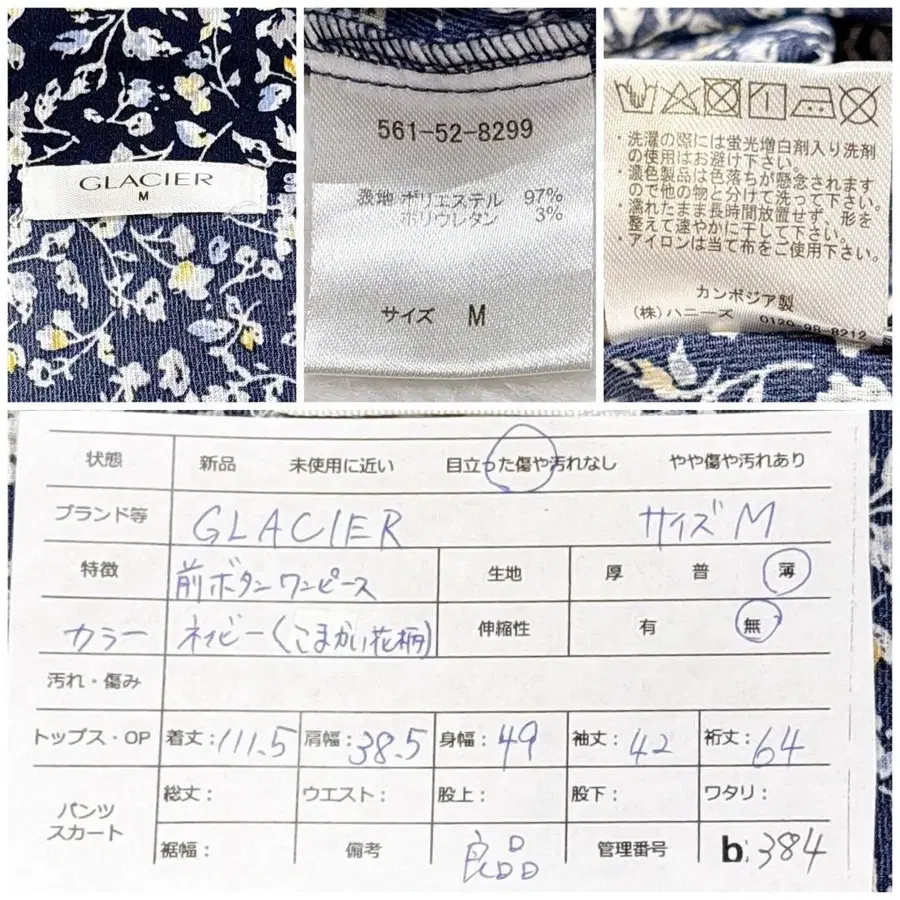 GLACIER
M
561-52-8299
表地 ポリエステル 97%
ポリウレタン 3%
サイズ M
・洗濯の際には蛍光増白剤入り洗剤
の使用はお避け下さい。
・濃色製品は色落ちが懸念されます
ので他の物と分けて洗って下さい。
・濡れたまま長時間放置せず、形を
整えて速やかに干して下さい。
・アイロンは当て布をご使用下さい。
カンボジア製
(株)ハニーズ 0120-98-8212
状態 新品 未使用に近い 目立った傷や汚れなし やや傷や汚れあり
ブランド等 GLACIER サイズ M
特徴 前ボタンワンピース 生地 厚 普 薄
カラー ネイビー(こまかい花柄) 伸縮性 有 無
汚れ・傷み
トップス・OP 着丈:111.5 肩幅:38.5 身幅:49 袖丈:42 裄丈:64
パンツ
スカート
総丈: ウエスト: 股上: 股下: ワタリ:
裾幅: 備考 良品 管理番号 b:384